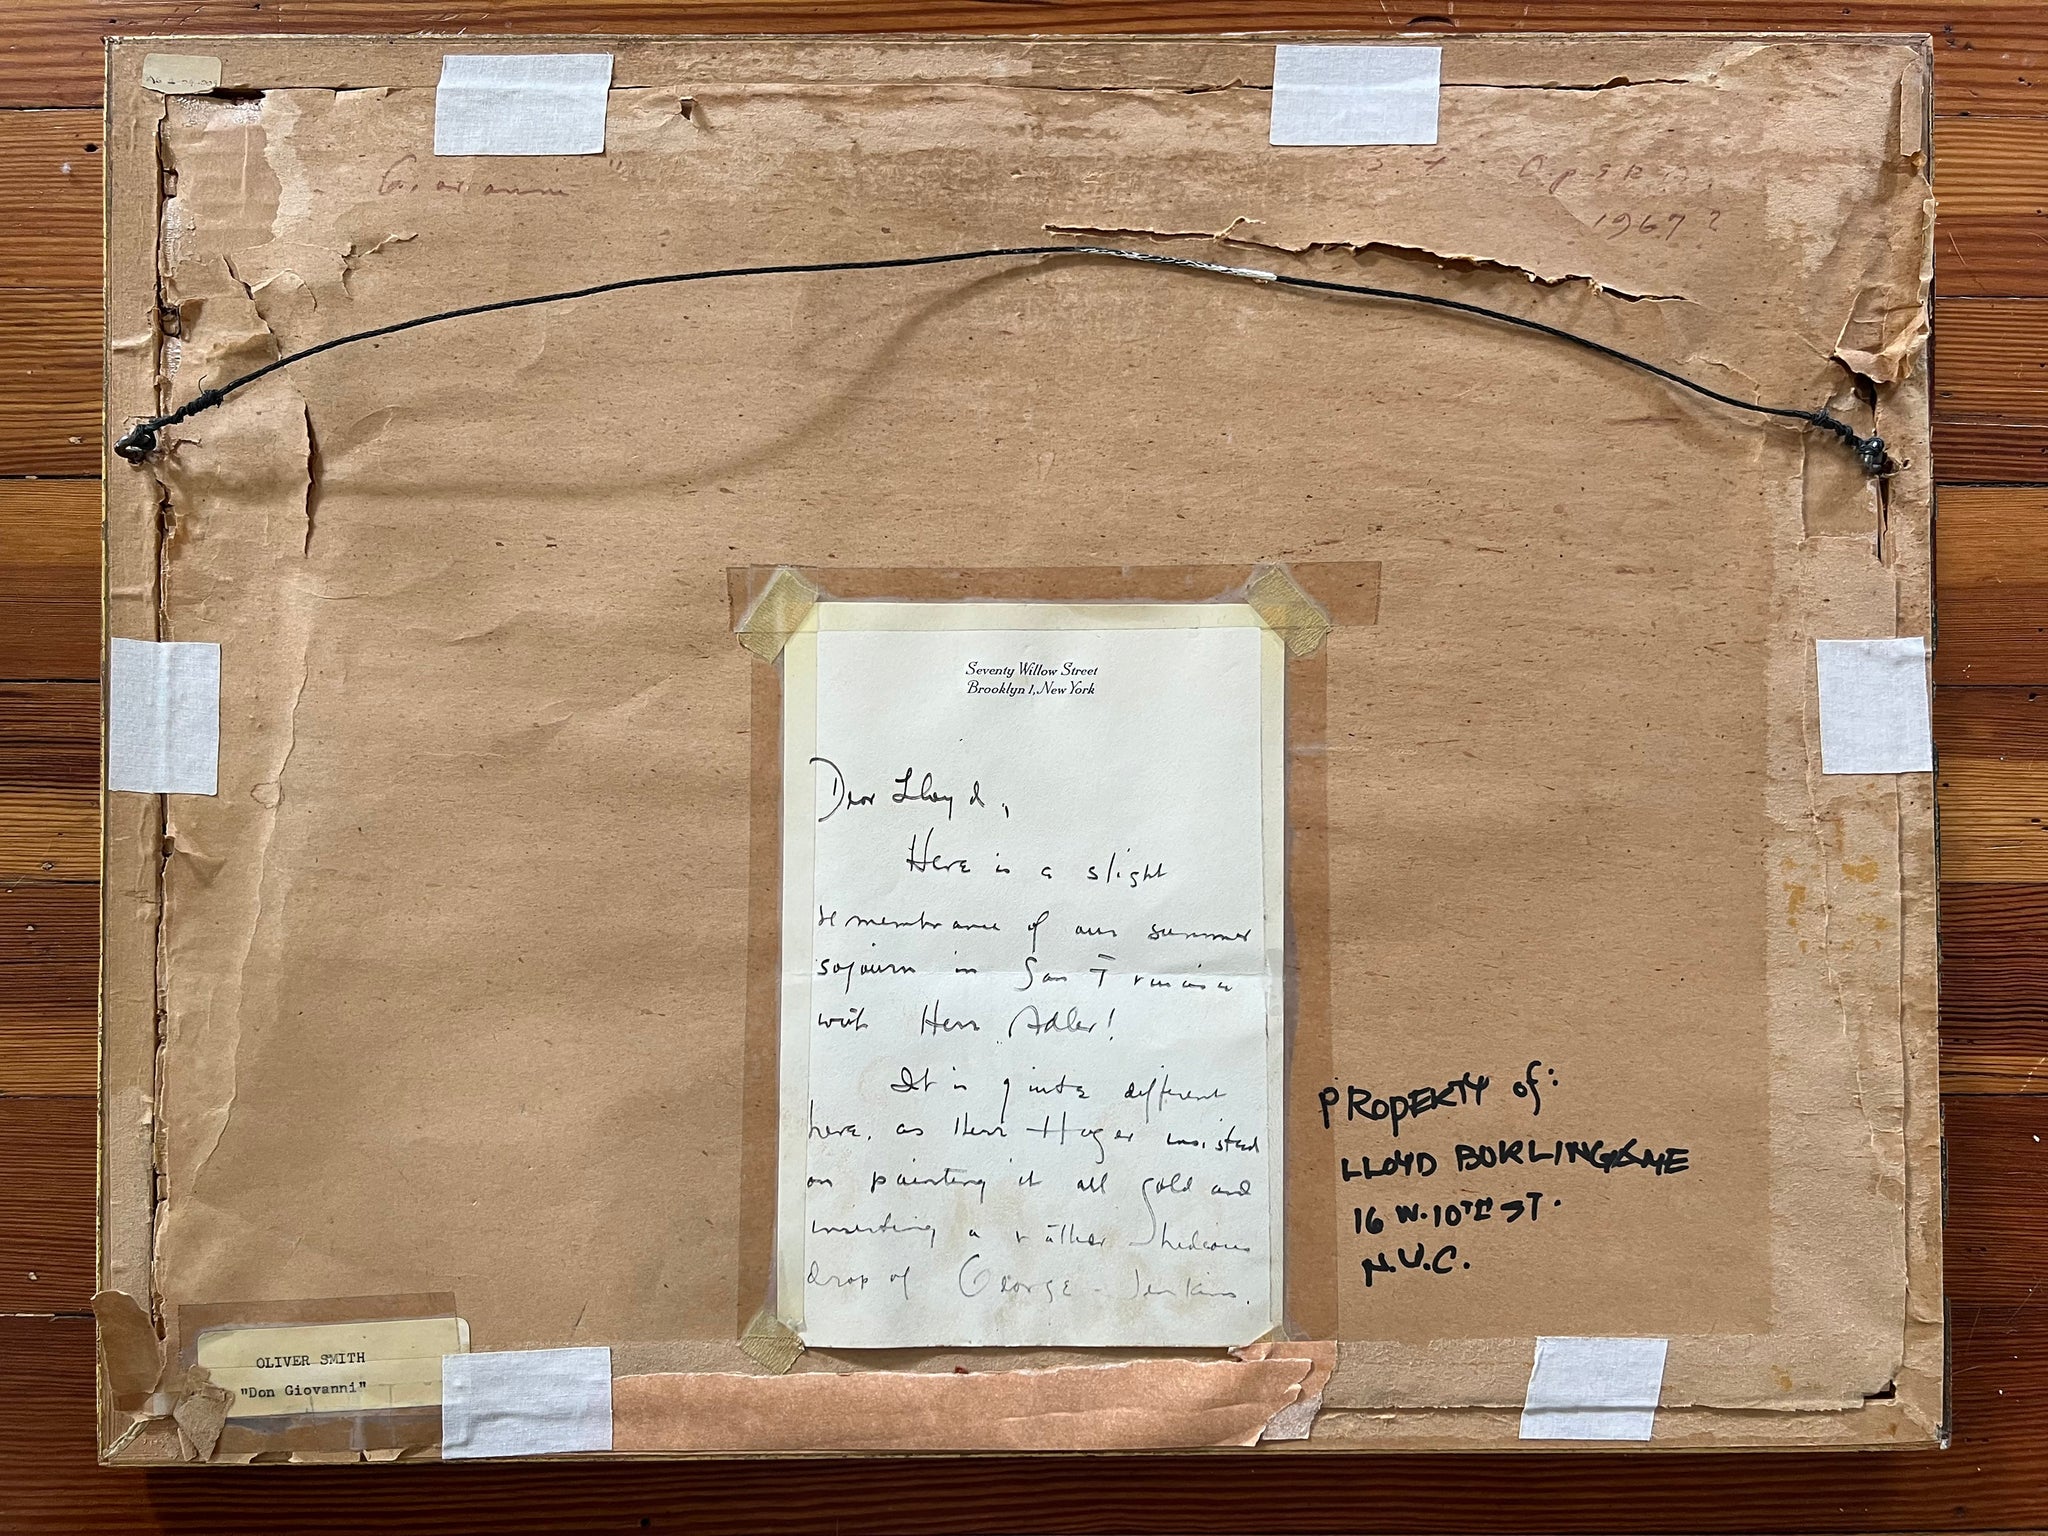 Giovanni"
S.F. Opera,
1967?
Seventy Willow Street
Brooklyn 1, New York
Dear Lloyd,
Here is a slight
remembrance of our summer
sojourn in San Francisco
with Herr Adler!
It is quite different
here, as Herr Hager insisted
on painting it all gold and
inserting a rather hideous
drop of George Jenkins.
PROPERTY of:
LLOYD BURLINGAME
16 W. 10TH ST.
N.Y.C.
OLIVER SMITH
"Don Giovanni"